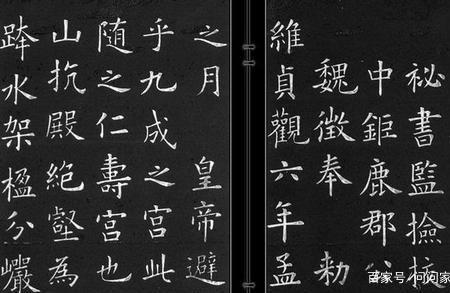 祕書監撿挍
中鉅鹿郡公
魏徵奉 勅
維貞觀六年孟
之月 皇帝避
乎九成之宮此
随之仁壽宮也
山抗殿絕壑為
跨水架楹分巖
百家号/何问家